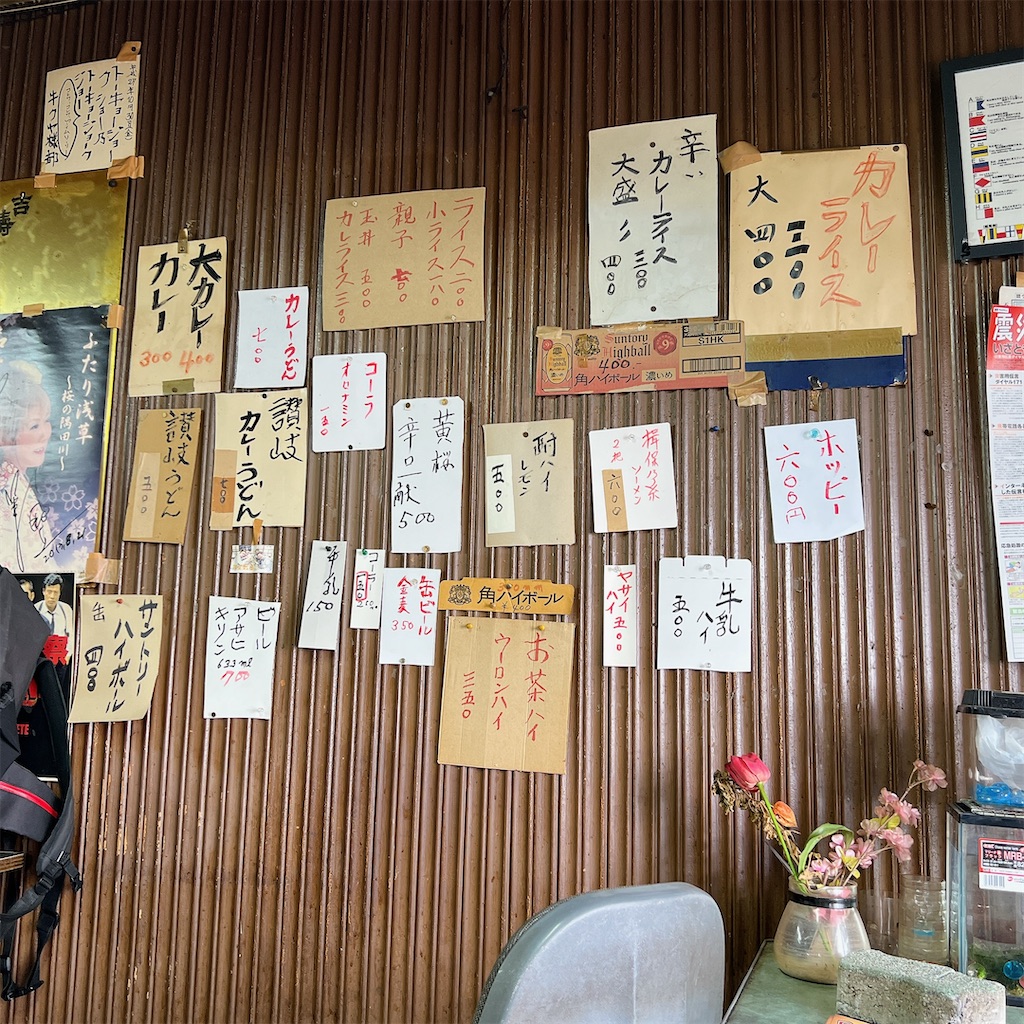 平成27年10月30日(金)
トーキョージョー
ク ショー乃
トーキョージョーク
ジョー
牛クヤ様部
吉
壽
ふたり浅草
〜桜の隅田川〜
大カレー
カレー
300 400
カレーうどん
七〇〇
ライス二〇〇
小ライス一八〇
親子 七〇〇
玉丼 五〇〇
カレライス三〇〇
辛い
カレーライス 三〇〇
大盛 〃 四〇〇
カレー
ライス
三〇〇
大 四〇〇
Suntory
Highball
400
角ハイボール
濃いめ
9%
S1HK
コーラ
オロナミン
一五〇
讃岐うどん
五〇〇
讃岐
カレーうどん
七〇〇
黄桜
辛口一献
500
酎ハイ
レモン
五〇〇
揖保乃糸
ソーメン
2把
六〇〇
ホッピー
六〇〇円
サントリー
ハイボール
缶 四〇〇
ビール
アサヒ
キリン
633ml
700
牛乳
150
コーラ
缶ビール
金麦
350
角ハイボール
お茶ハイ
ウーロンハイ
三五〇
ヤサイ
ハイ
五〇〇
牛乳
ハイ
五〇〇
MRB